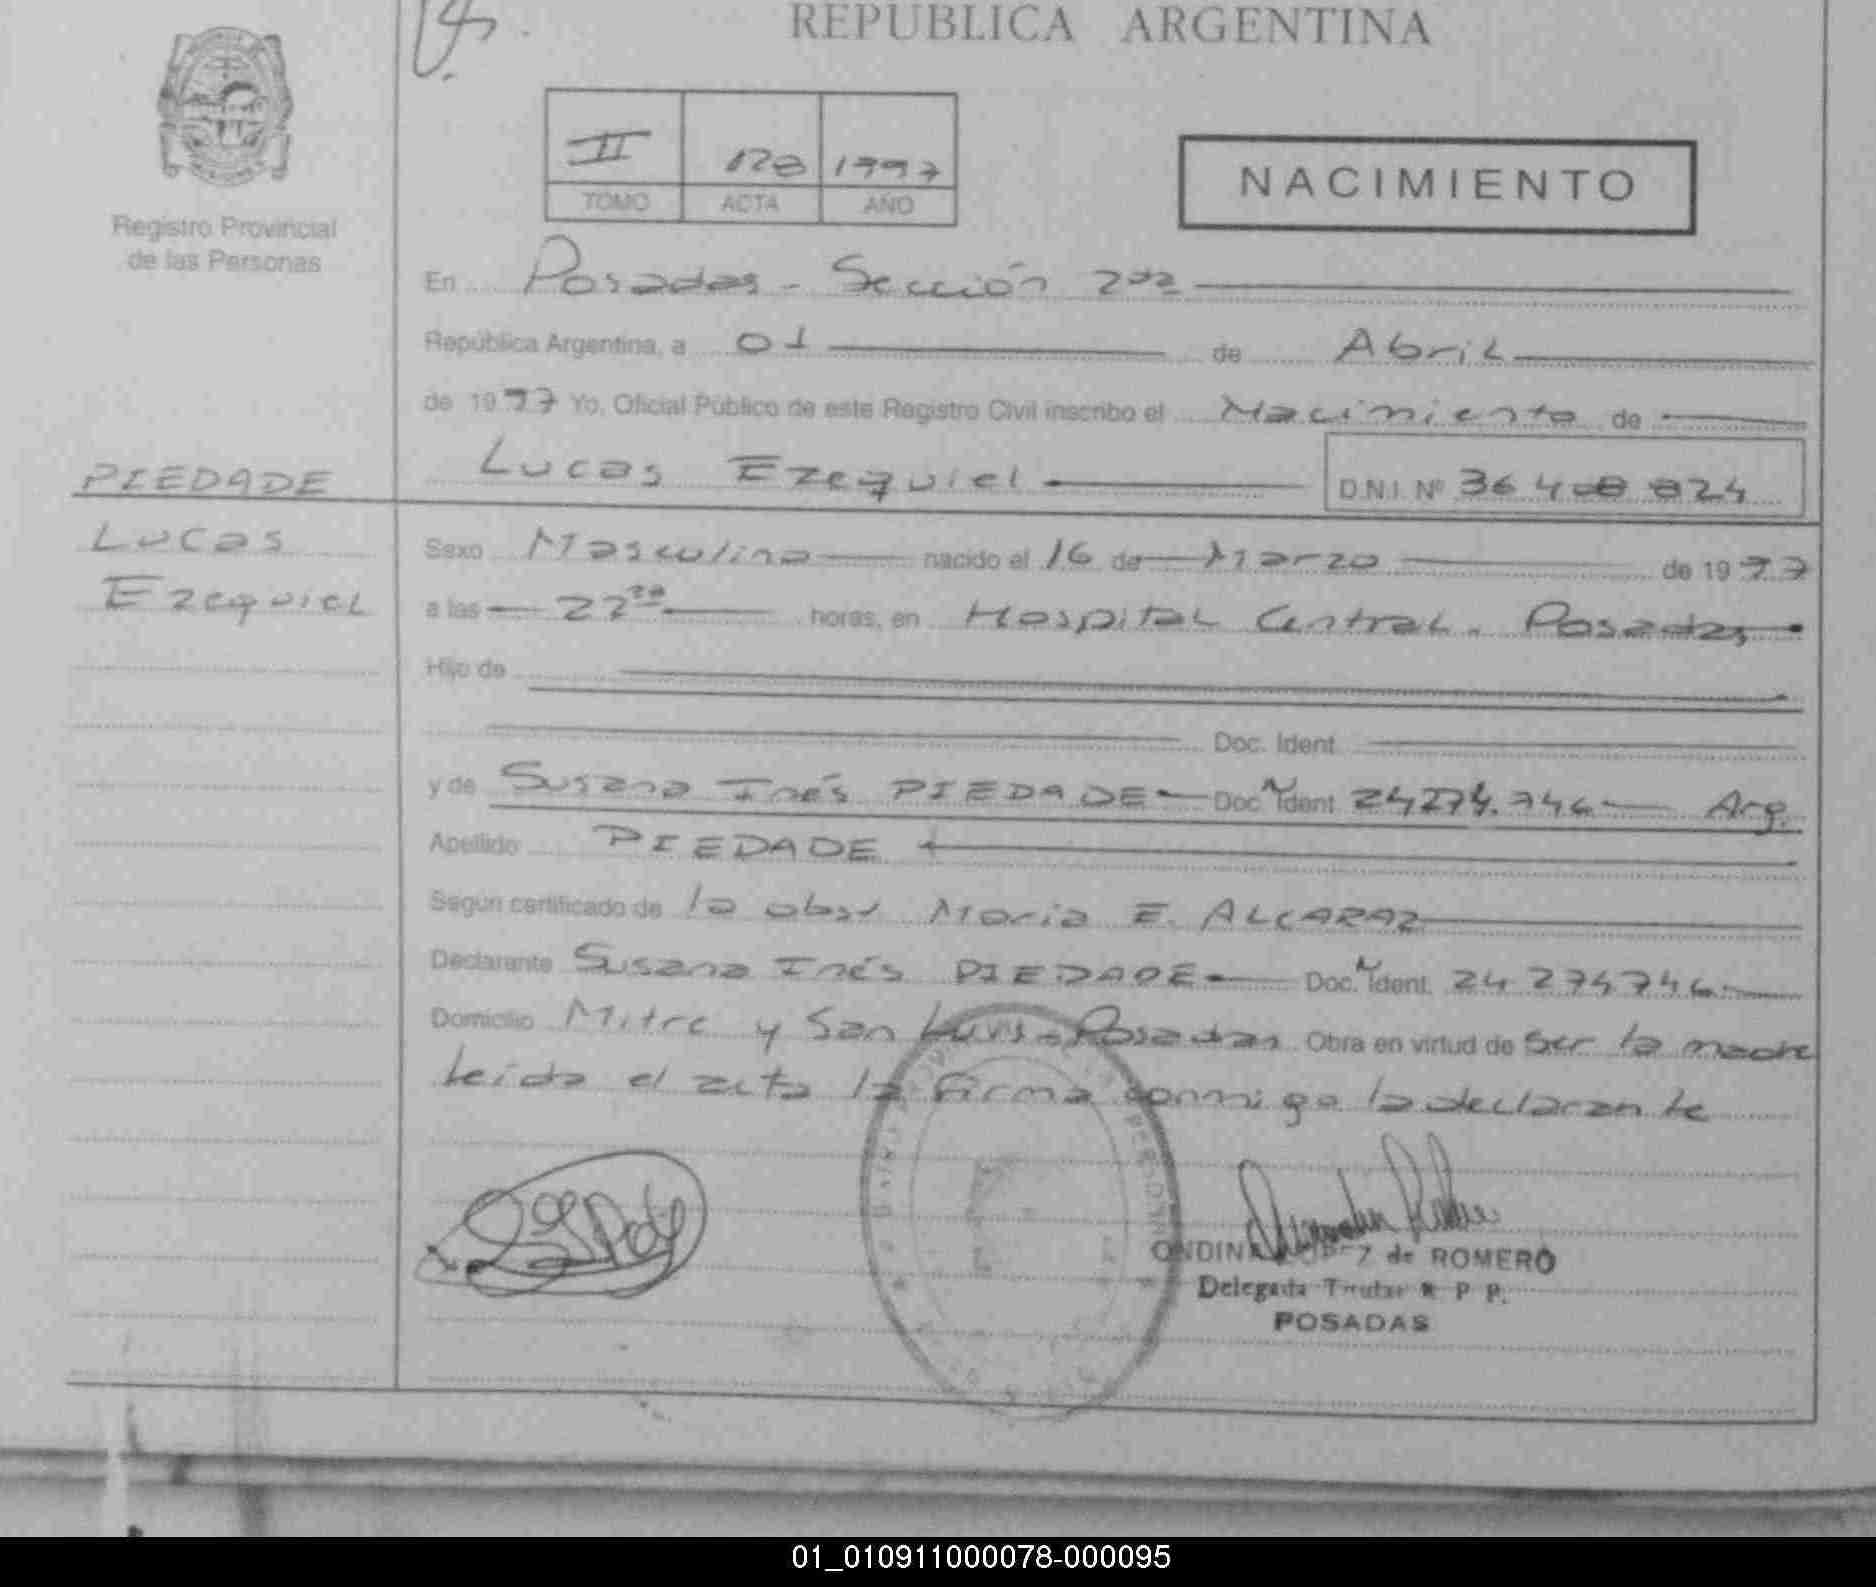 REPUBLICA ARGENTINA
II 128 1997
TOMO ACTA AÑO
NACIMIENTO
Registro Provincial
de las Personas
En Posadas - Sección 2da
República Argentina, a 01 de Abril
de 1997 Yo, Oficial Público de este Registro Civil inscribo el Nacimiento de
Lucas Ezequiel D.N.I. Nº
PIEDADE
Lucas
Ezequiel
Sexo Masculino nacido el 16 de Marzo de 1997
a las 22 horas, en Hospital Central. Posadas
Hijo de
Doc. Ident.
y de Susana Inés PIEDADE Doc. N Ident. 24274.746 Arg.
Apellido PIEDADE
Según certificado de la obst María E. ALCARAZ
Declarante Susana Inés PIEDADE Doc. N Ident. 24 274746
Domicilio Mitre y San Luis - Posadas Obra en virtud de ser la madre
leida el acta la firma conmigo la declarante
ONDINA de ROMERO
Delegada Titular R P P.
POSADAS
01_010911000078-000095